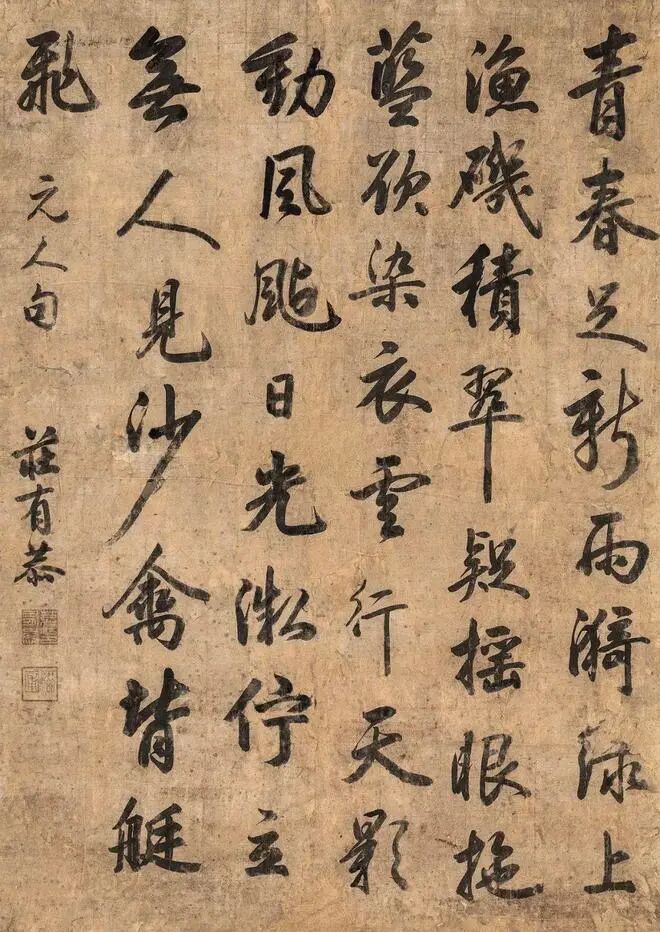 青春足新雨漪緑上
漁磯積翠疑摇眼拖
藍欲染衣雲行天影
動風颭日光微佇立
無人見沙禽背艇
飛 元人句
莊有恭